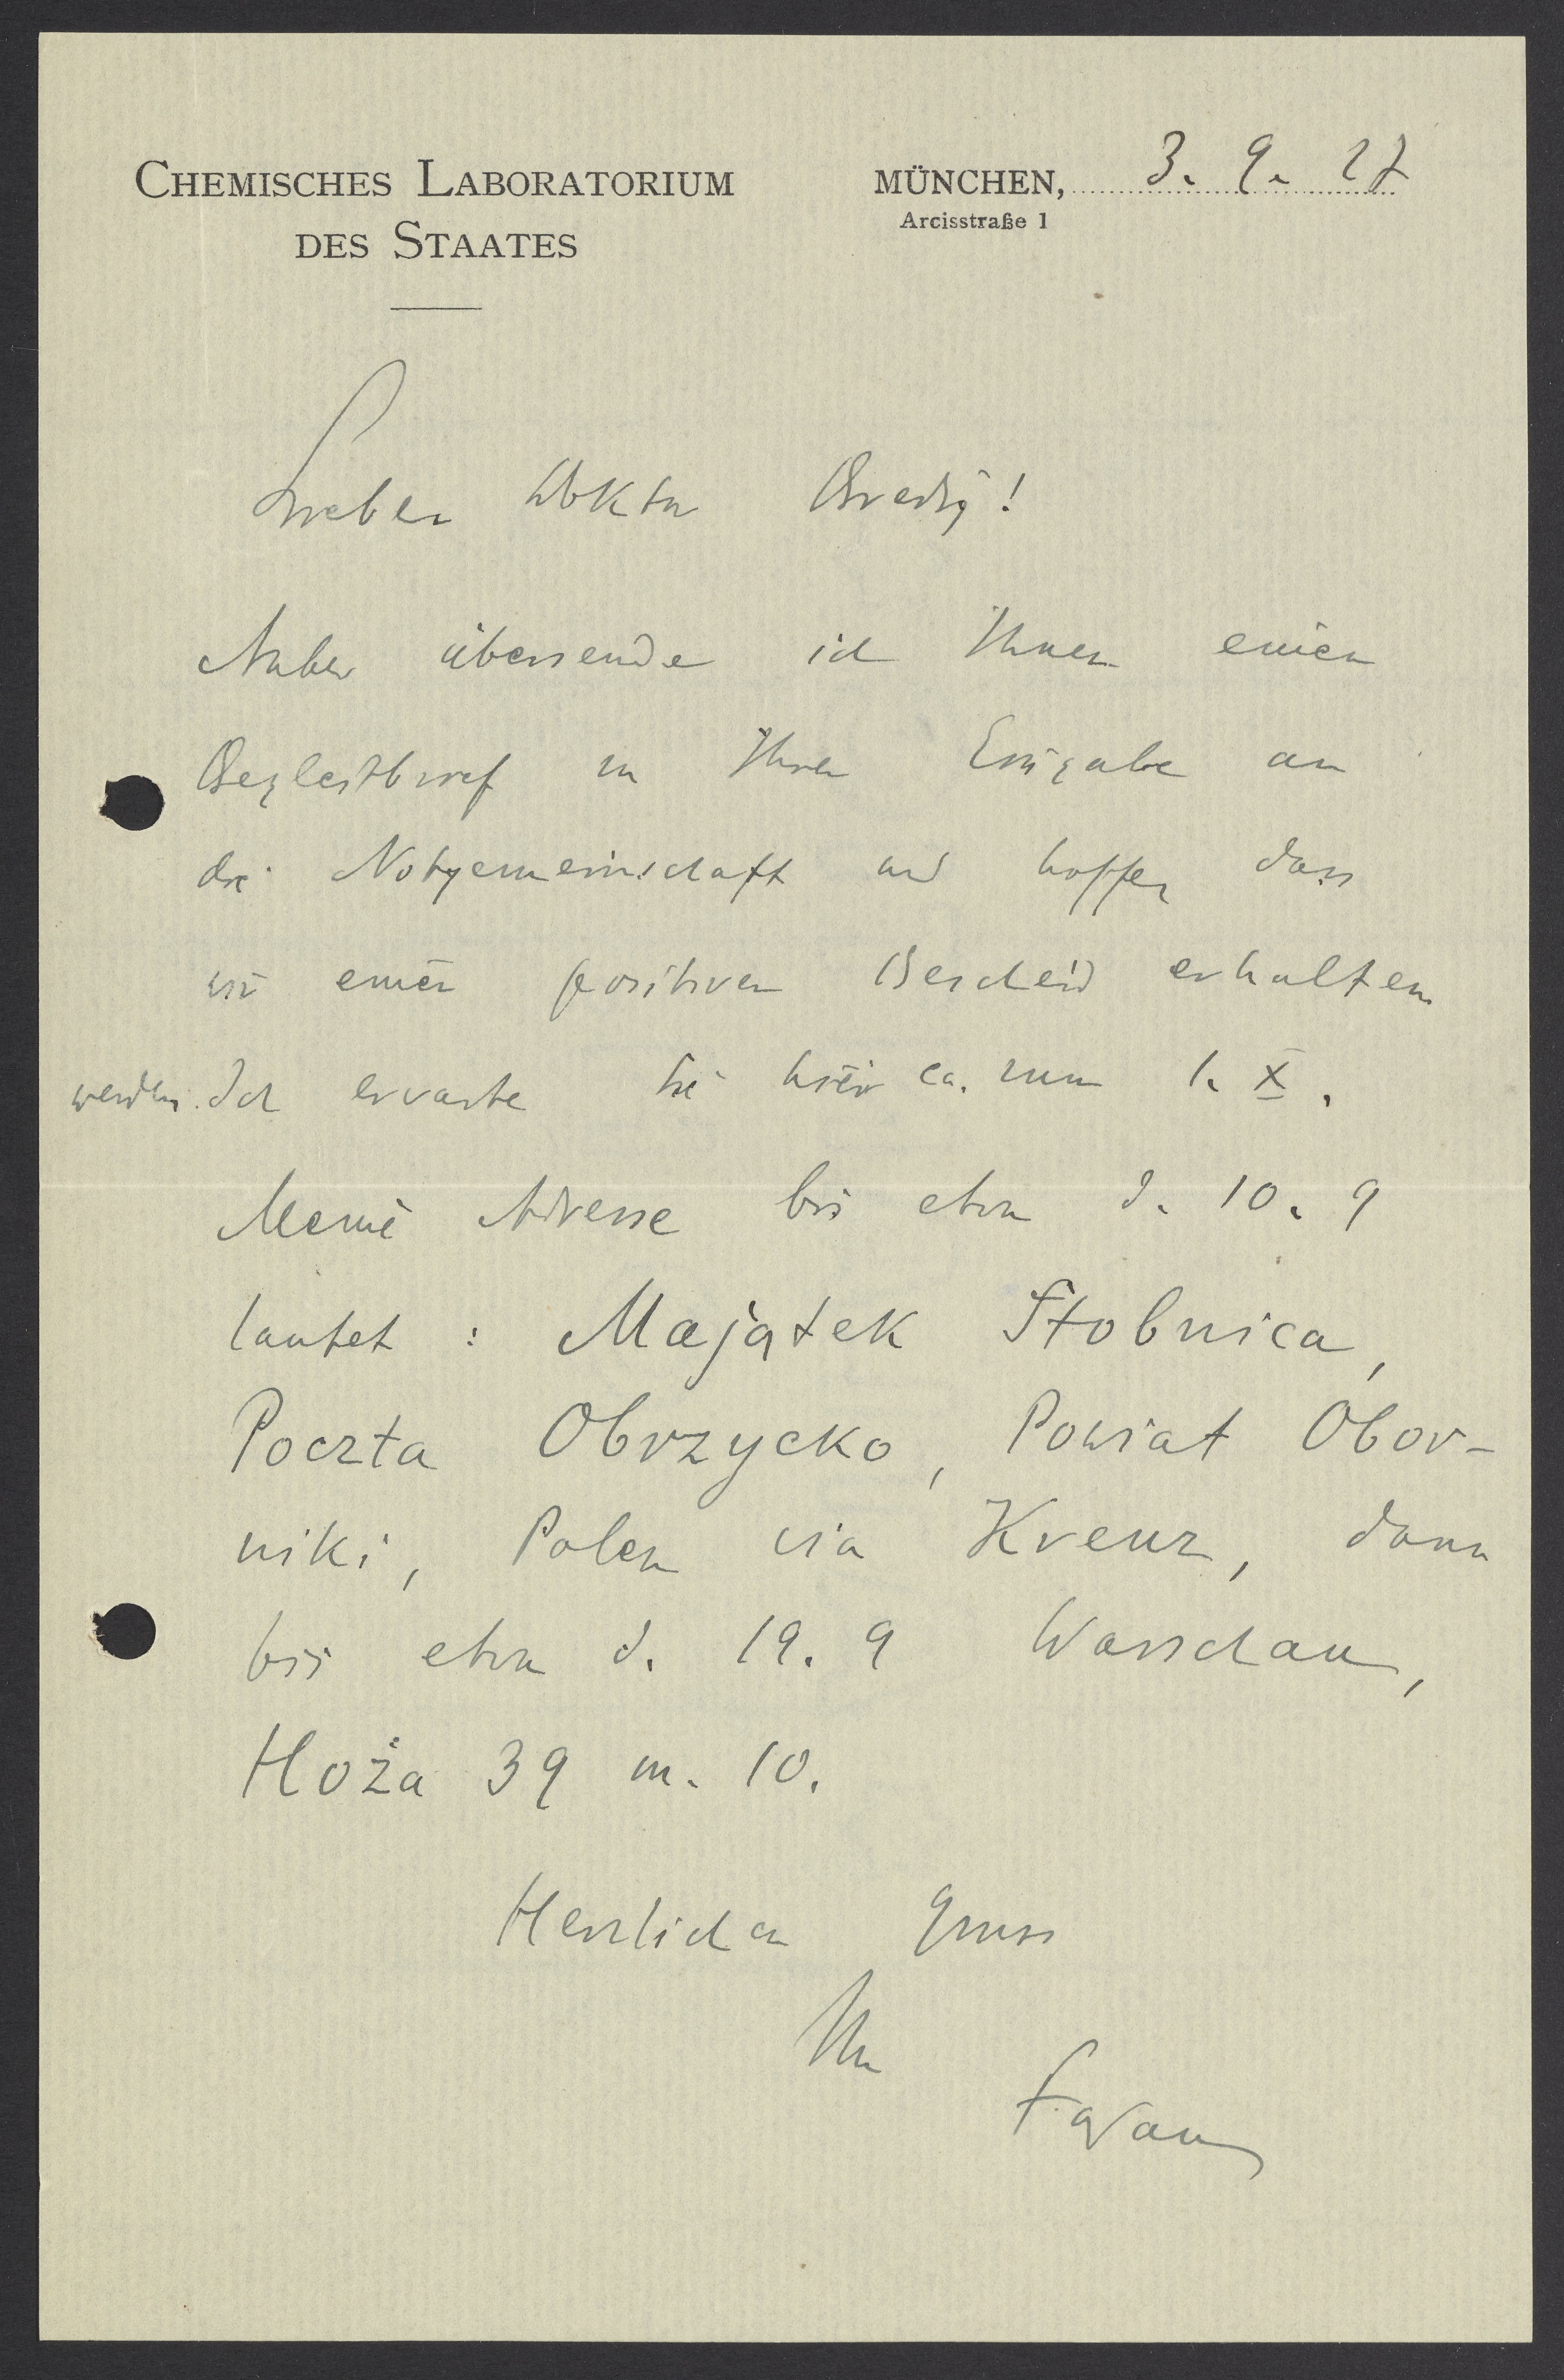 CHEMISCHES LABORATORIUM
DES STAATES
MÜNCHEN, 3. 9. 27
Arcisstraße 1
Lieber Doktor Bredig!
Anbei übersende ich Ihnen einen
Begleitbrief zu Ihrer Eingabe an
die Notgemeinschaft und hoffe, dass
wir einen positiven Bescheid erhalten
werden. Ich erwarte Sie hier ca. zum 1. X.
Meine Adresse bis etwa d. 10. 9
lautet: Majątek Stobnica,
Poczta Obrzycko, Powiat Obor-
niki, Polen via Kreuz, dann
bis etwa d. 19. 9 Warschau,
Hoża 39 m. 10.
Herzlichen Gruss
Ihr
Fajans